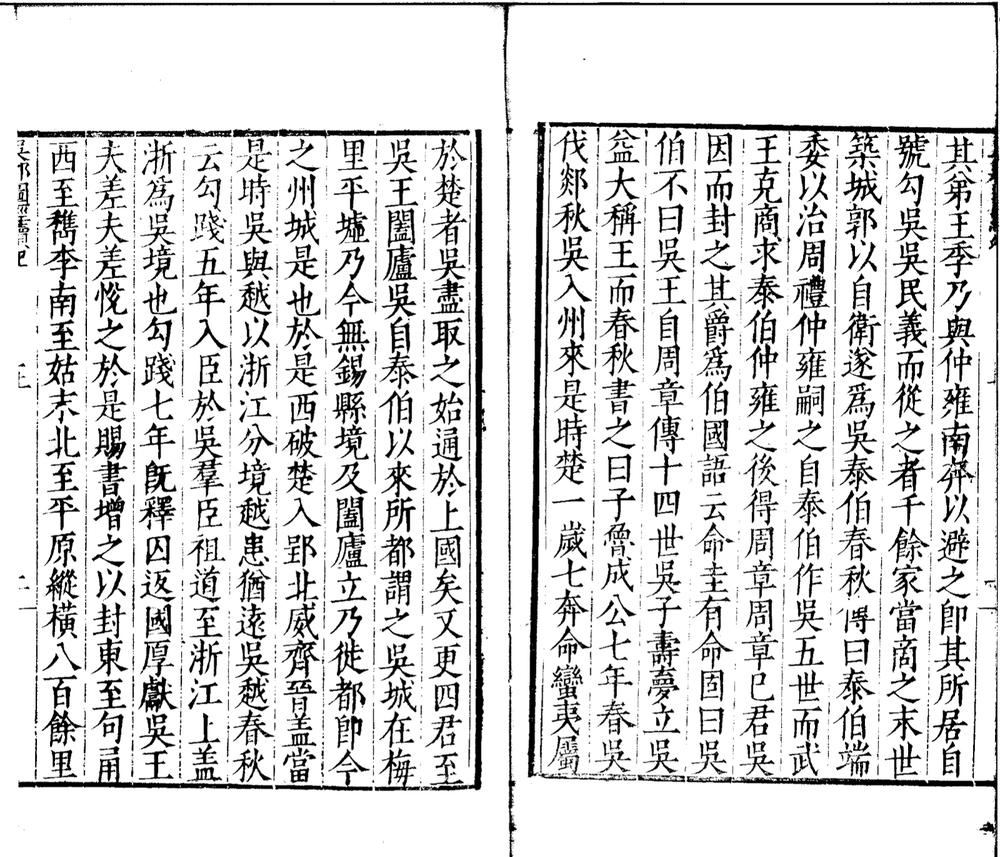 其弟王季乃與仲雍南奔以避之卽其所居自
號勾吳吳民義而從之者千餘家當商之末世
築城郭以自衛遂爲吳泰伯春秋傳曰泰伯端
委以治周禮仲雍嗣之自泰伯作吳五世而武
王克商求泰伯仲雍之後得周章周章已君吳
因而封之其爵爲伯國語云命圭有命固曰吳
伯不曰吳王自周章傳十四世吳子壽夢立吳
益大稱王而春秋書之曰子魯成公七年春吳
伐郯秋吳入州來是時楚一歲七奔命蠻夷屬
於楚者吳盡取之始通於上國矣又更四君至
吳王闔廬吳自泰伯以來所都謂之吳城在梅
里平墟乃今無錫縣境及闔廬立乃徙都卽今
之州城是也於是西破楚入郢北威齊晉盖當
是時吳與越以浙江分境越患猶遠吳越春秋
云勾踐五年入臣於吳羣臣祖道至浙江上盖
浙爲吳境也勾踐七年旣釋囚返國厚獻吳王
夫差夫差悅之於是賜書增之以封東至句甬
西至檇李南至姑末北至平原縱橫八百餘里
吳郡圖經續記